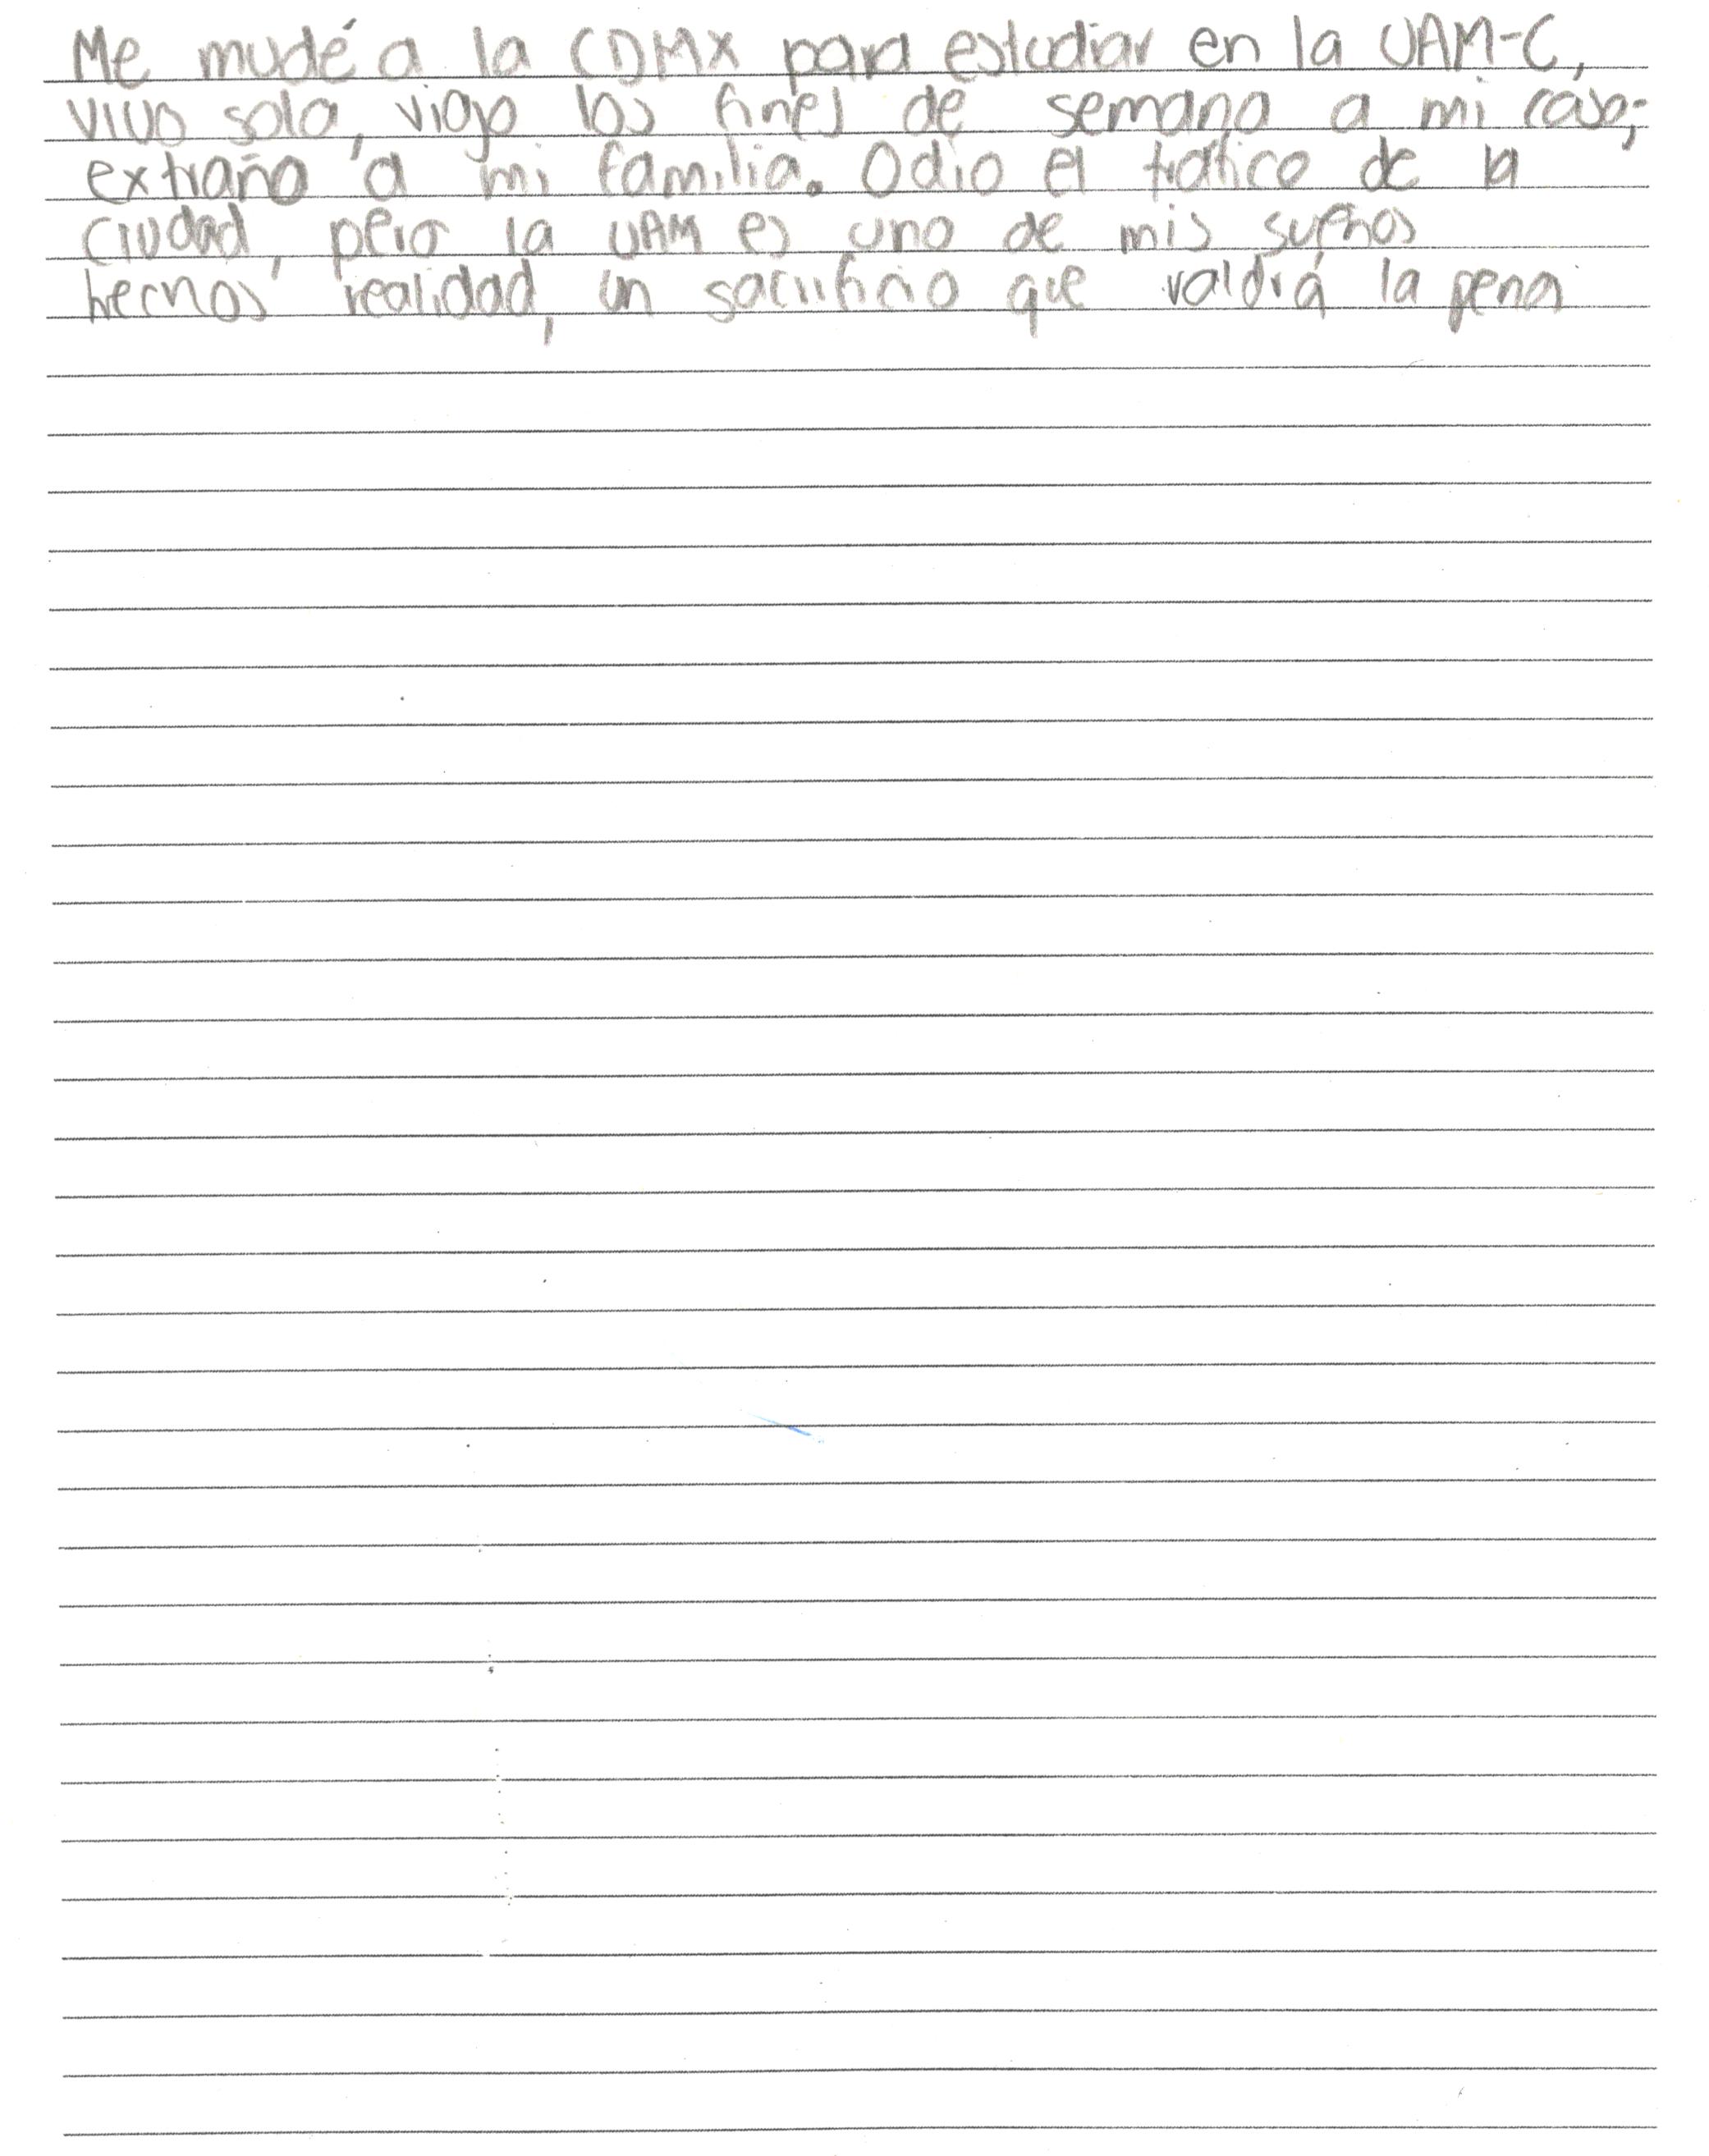 Me mudé a la CDMX para estudiar en la UAM-C,
vivo sola, viajo los fines de semana a mi casa;
extraño a mi familia. Odio el trafico de la
ciudad, pero la UAM es uno de mis sueños
hechos realidad, un sacrificio que valdrá la pena